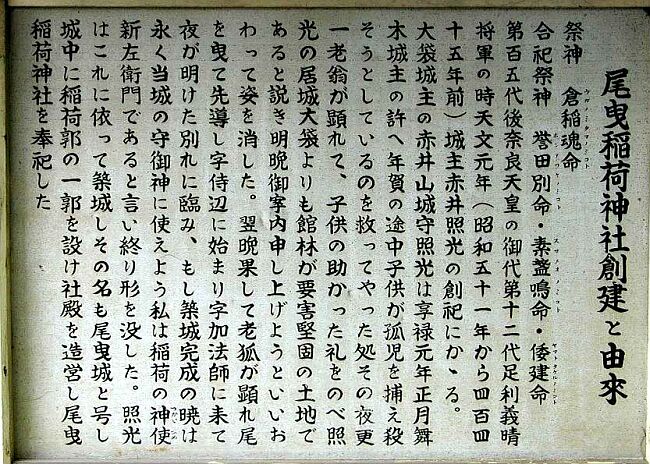 尾曳稲荷神社創建と由来
祭神　倉稲魂命
合祀祭神　誉田別命・素盞鳴命・倭建命
第百五代後奈良天皇の御代第十二代足利義晴
将軍の時天文元年（昭和五十一年から四百四
十五年前）城主赤井照光の創祀にかゝる。
大袋城主の赤井山城守照光は享禄元年正月舞
木城主の許へ年賀の途中子供が孤児を捕え殺
そうとしているのを救ってやった処その夜更
一老翁が顕れて、子供の助かった礼をのべ照
光の居城大袋よりも館林が要害堅固の土地で
あると説き明晩御案内申し上げようといいお
わって姿を消した。翌晩果して老狐が顕れ尾
を曳て先導し字侍辺に始まり字加法師に来て
夜が明けた別れに臨み、もし築城完成の暁は
永く当城の守御神に使えよう私は稲荷の神使
新左衛門であると言い終り形を没した。照光
はこれに依って築城しその名も尾曳城と号し
城中に稲荷郭の一郭を設け社殿を造営し尾曳
稲荷神社を奉祀した